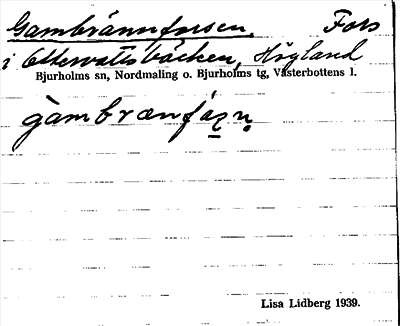 Gambrännforsen, Fors
i Ottervattsbäcken, Högland
Bjurholms sn, Nordmaling o. Bjurholms tg, Västerbottens l.
Lisa Lidberg 1939.